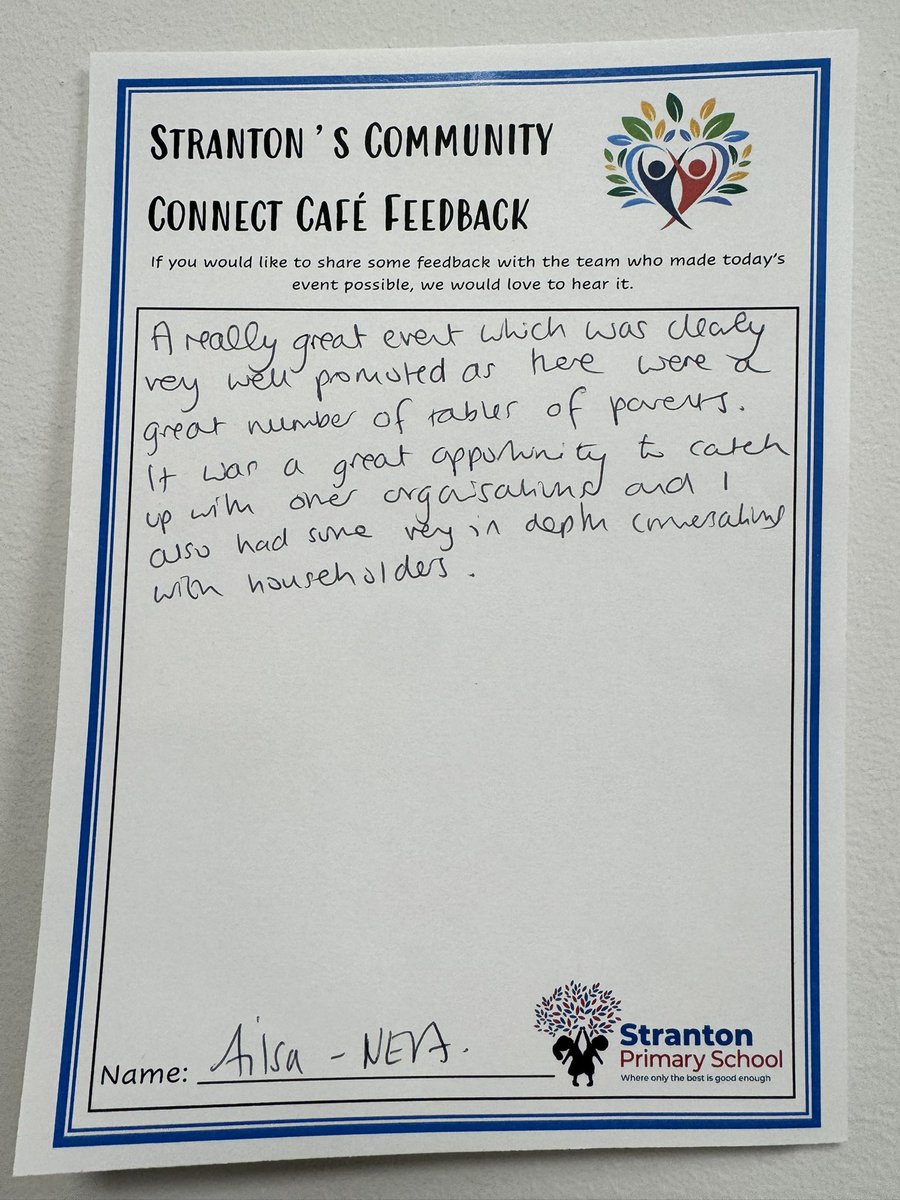 STRANTON'S COMMUNITY
CONNECT CAFÉ FEEDBACK
If you would like to share some feedback with the team who made today's
event possible, we would love to hear it.
A really great event which was clearly
very well promoted as there were a
great number of tables of parents.
It was a great opportunity to catch
up with other organisations and I
also had some very in depth conversations
with householders.
Name: Ailsa - NEA.
Stranton
Primary School
Where only the best is good enough